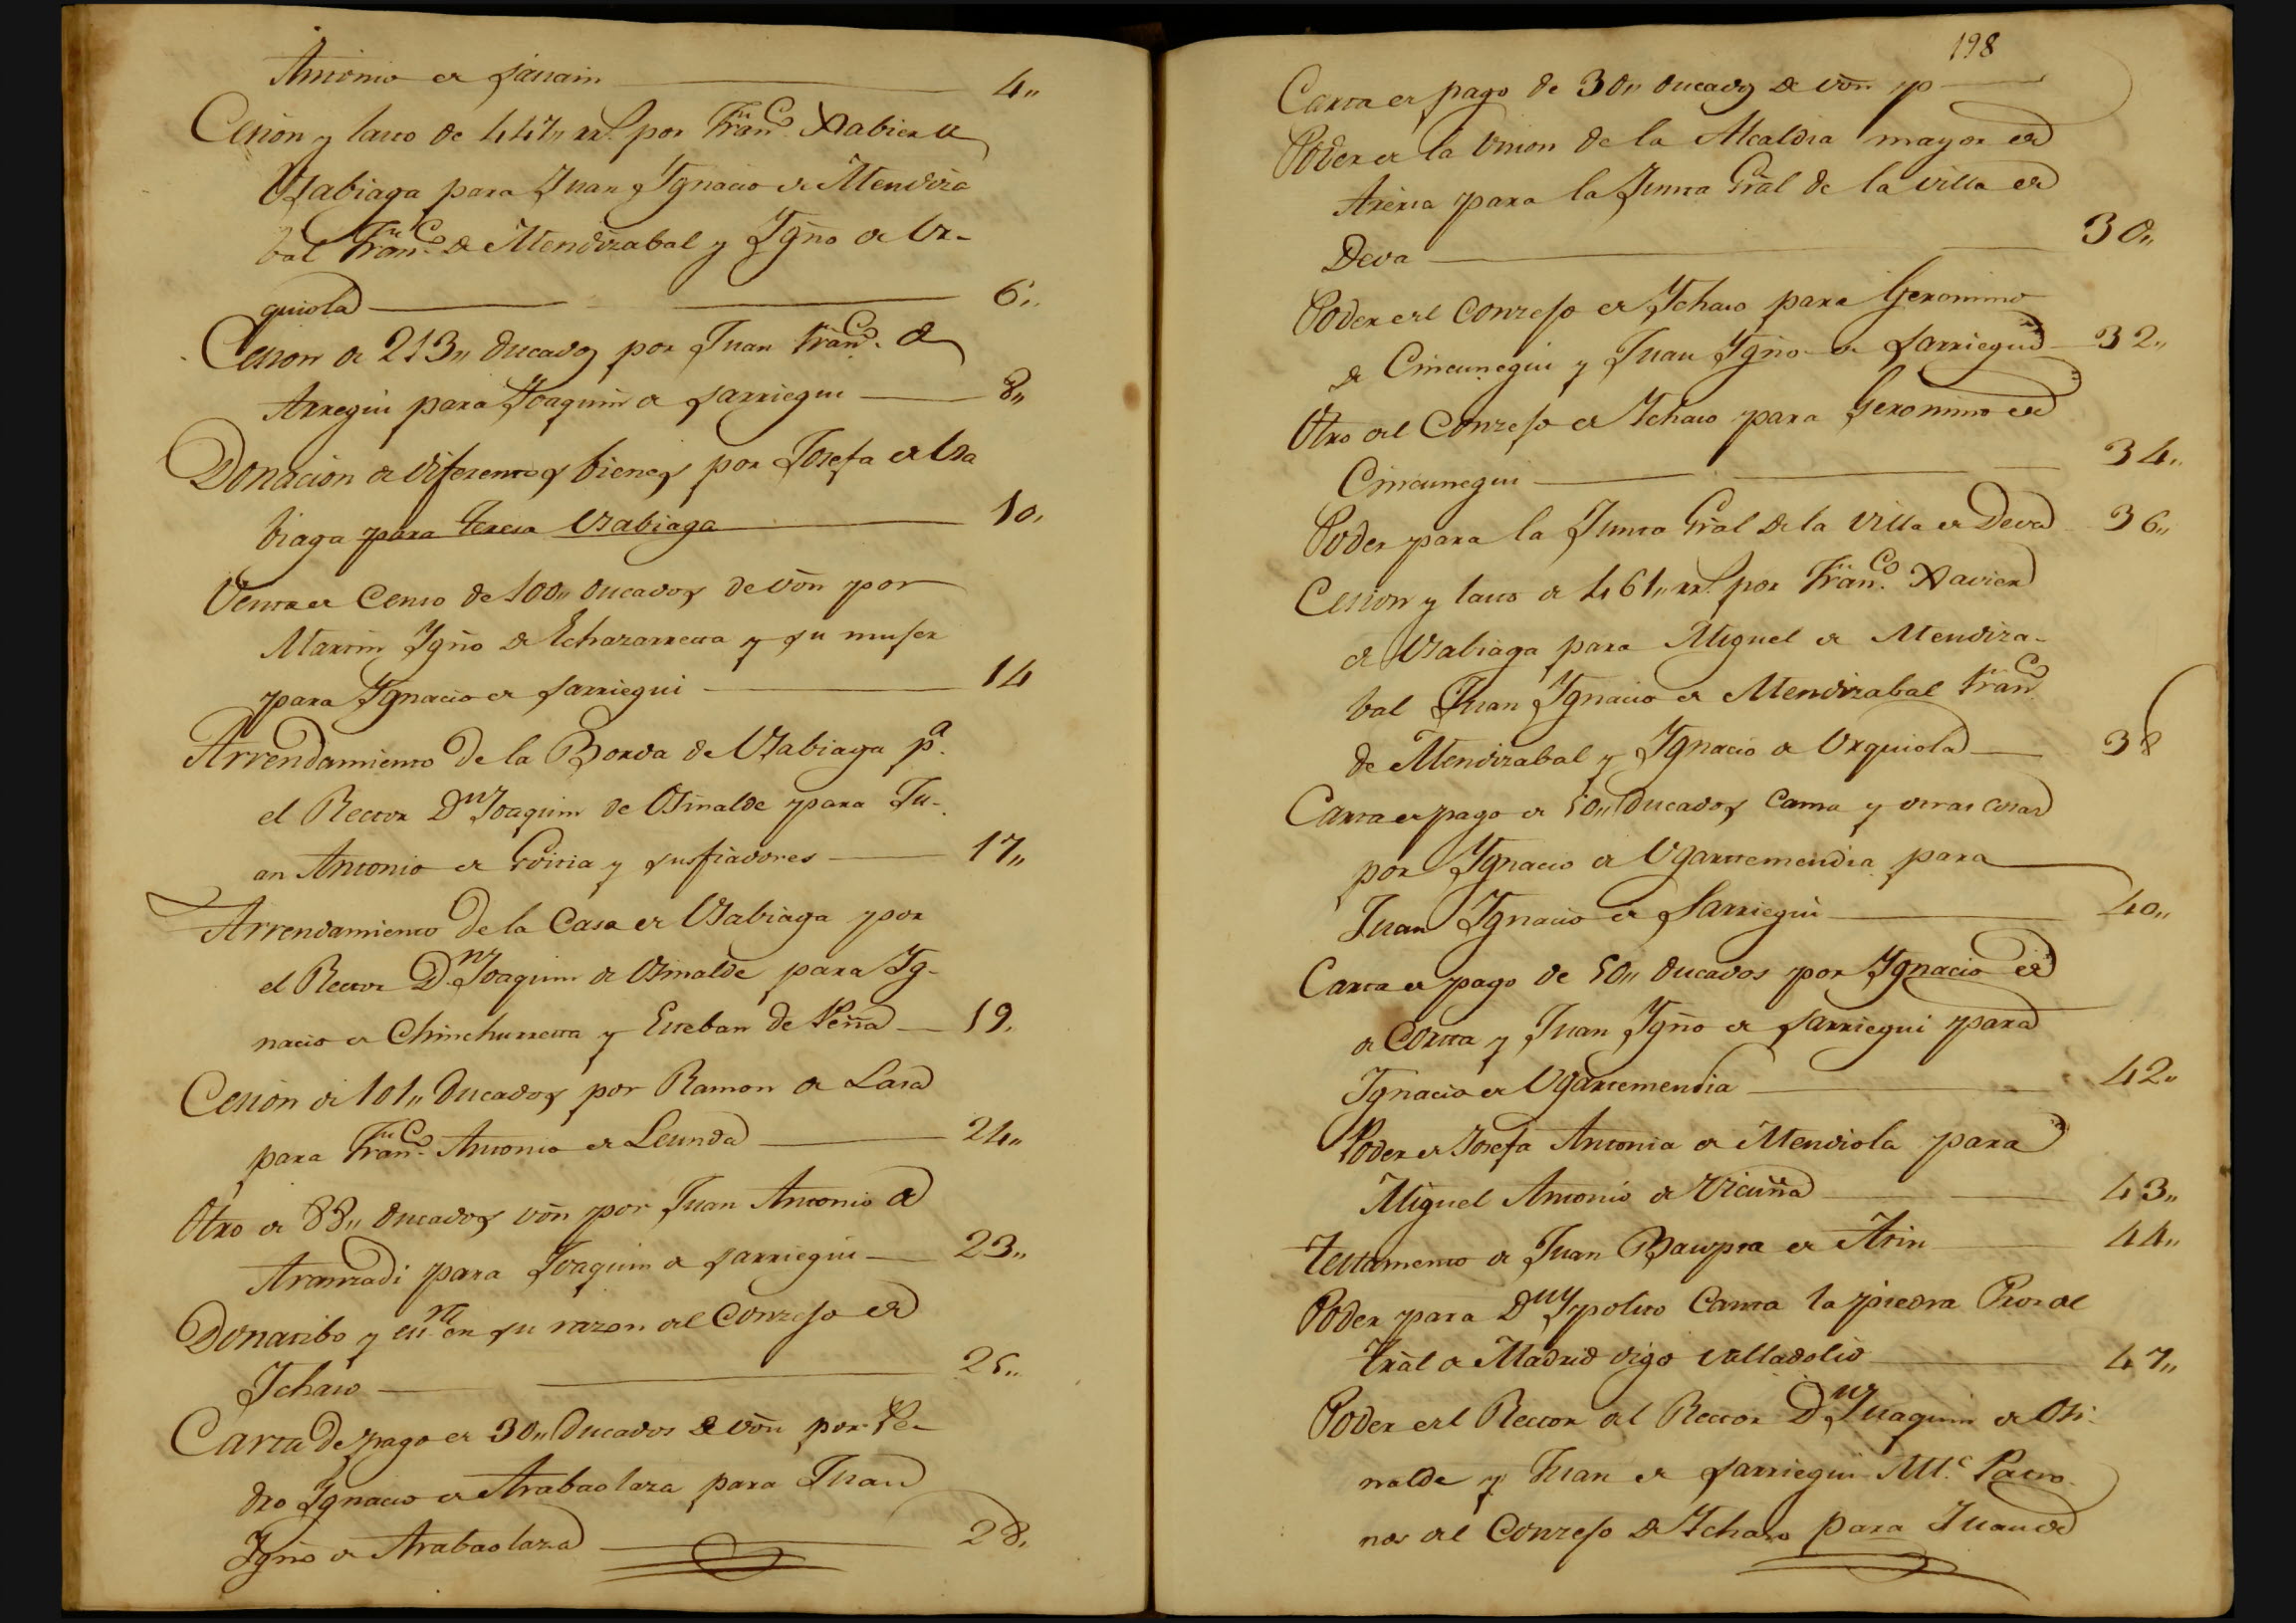 Antonio de Sarrain 4,,
Cesion y lasto de 447,, rr.s por Fran.co Xabier de
Usabiaga para Juan Ygnacio de Mendiza
bal Fran.co de Mendizabal y Ygño de Ur-
quiola 6,,
Cesion de 213,, ducados por Juan Fran.co de
Arregui para Joaquin de Sarriegui 8,,
Donacion de diferentes bienes por Josefa de Usa
biaga para Teresa Usabiaga 10,
Venta de Censo de 100,, ducados de von por
Martin Ygño de Echazarreta y su muger
para Ygnacio de Sarriegui 14
Arrendamiento de la Borda de Usabiaga p.a
el Rector Dn Joaquin de Osinalde para Ju-
an Antonio de Goitia y sus fiadores 17,,
Arrendamiento de la Casa de Usabiaga por
el Rector Dn Joaquin de Osinalde para Yg-
nacio de Chinchurreta y Esteban de Peña 19,
Cesion de 101,, Ducados por Ramon de Lasa
para Fran.co Antonio de Leunda 21,,
Otro de 88,, ducados von por Juan Antonio de
Aranzadi para Joaquin de Sarriegui 23,,
Donatibo y en su razon del Conzejo de
Ychaso 25,,
Carta de pago de 30,, Ducados de von por Pe-
dro Ygnacio de Arabaolaza para Juan
Ygño de Arabaolaza 28,
198
Carta de pago de 30,, ducados de von p
Poder de la Union de la Alcaldia mayor de
Areria para la Junta Gral de la villa de
Deva 30,,
Poder del Conzejo de Ychaso para Geronimo
de Cincunegui y Juan Ygño de Sarriegui 32,,
Otro del Conzejo de Ychaso para Geronimo de
Cincunegui 34,,
Poder para la Junta Gral de la Villa de Deva 36,,
Cesion y lasto de 461,, rr.s por Fran.co Xavier
de Usabiaga para Miguel de Mendiza-
bal Juan Ygnacio de Mendizabal Fran.co
de Mendizabal y Ygnacio de Urquiola 38
Carta de pago de 50,, Ducados Cama y otras cosas
por Ygnacio de Ugartemendia para
Juan Ygnacio de Sarriegui 40,,
Carta de pago de 50,, ducados por Ygnacio de
de Cortta y Juan Ygño de Sarriegui para
Ygnacio de Ugartemendia 42,,
Poder de Josefa Antonia de Mendiola para
Miguel Antonio de Vicuña 43,,
Testamento de Juan Baupta de Arin 44,,
Poder para Dn Ypolito Canta la piedra Pror del
tral de Madrid digo Valladolid 47,,
Poder del Rector del Rector Dn Juaquin de Osi-
nalde y Juan de Sarriegui M.e Patro
nos del Conzejo de Ychaso para Juan de